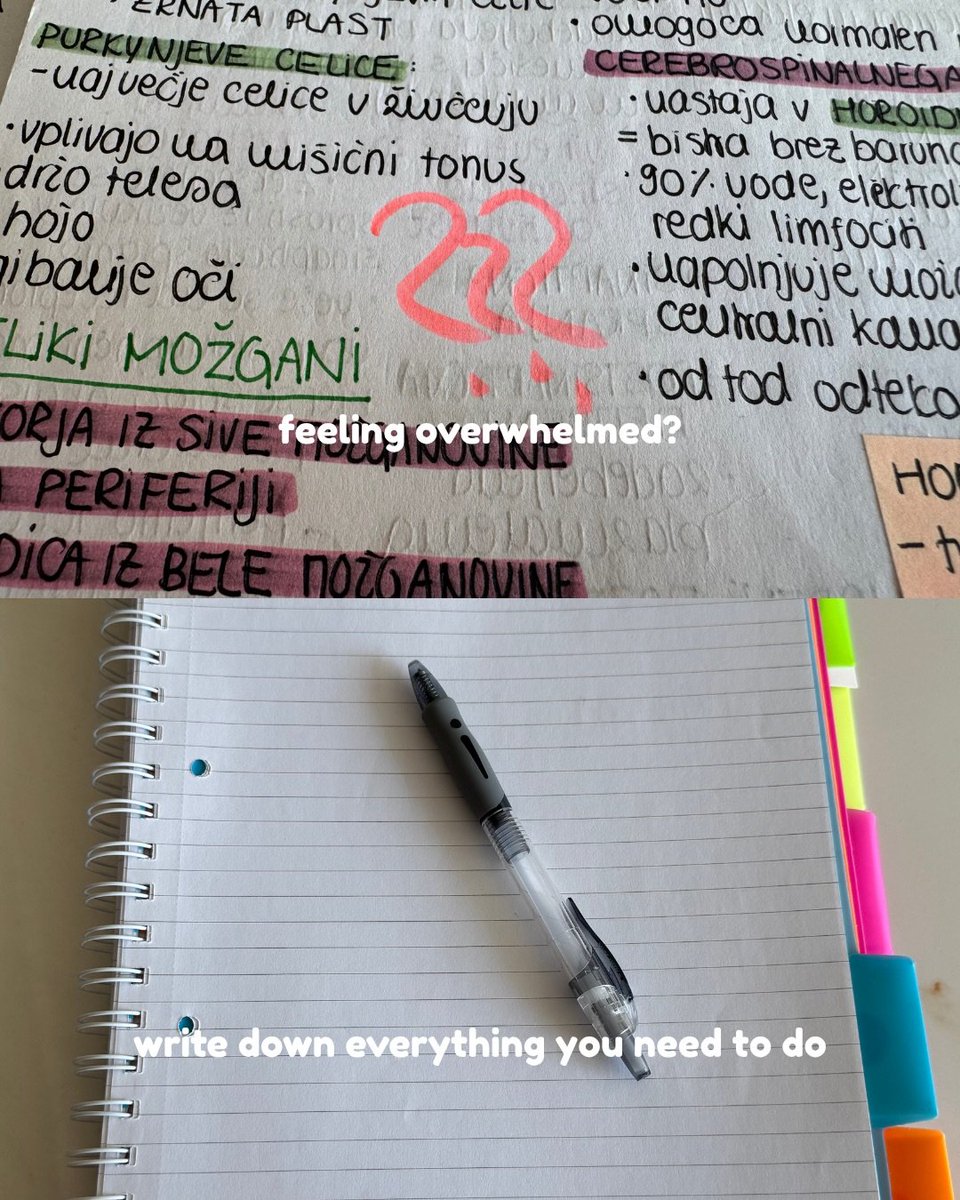 PLAST
PURKYNJEVE CELICE:
-največje celice v živčevju
•vplivajo na mišični tonus
držo telesa
hojo
gibanje oči
MOŽGANI
IZ SIVE MOŽGANOVINE
PERIFERIJI
IZ BELE MOŽGANOVINE
• omogoča normalen
CEREBROSPINALNEGA
•nastaja v
= bistra brez
•90% vode,
redki limfociti
•napolnjuje
centralni
•od tod
???
feeling overwhelmed?
write down everything you need to do